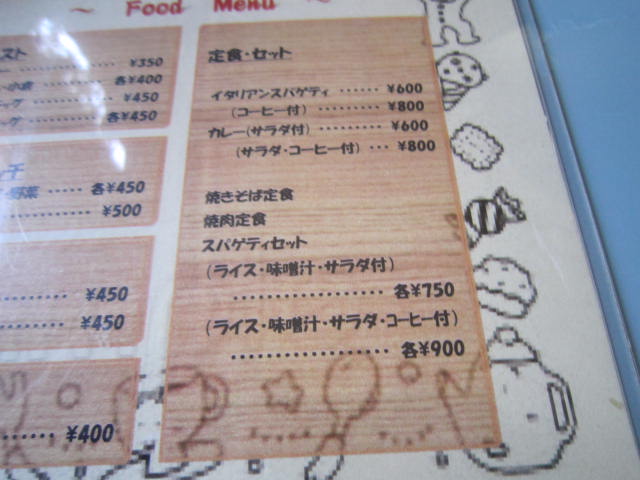 ~ Food Menu ~
スト
¥350
小倉 各¥400
ッグ ¥450
ッグ 各¥450
チ
野菜 ····· 各¥450
¥500
¥450
¥450
¥400
定食・セット
イタリアンスパゲティ ······ ¥600
(コーヒー付) ········· ¥800
カレー(サラダ付) ········· ¥600
(サラダ・コーヒー付) ··· ¥800
焼きそば定食
焼肉定食
スパゲティセット
(ライス・味噌汁・サラダ付)
·················· 各¥750
(ライス・味噌汁・サラダ・コーヒー付)
·················· 各¥900